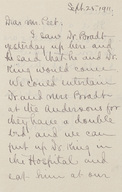 Sept. 25. 1911.
Dear Mr. Peet.
I saw Dr. Bradt
yesterday up here and
he said that he and Dr.
King would come.
We could entertain
Dr and Mrs Bradt
at the Andersons for
they have a double
bed and we can
put up Dr King in
the Hospital and
eat him at our